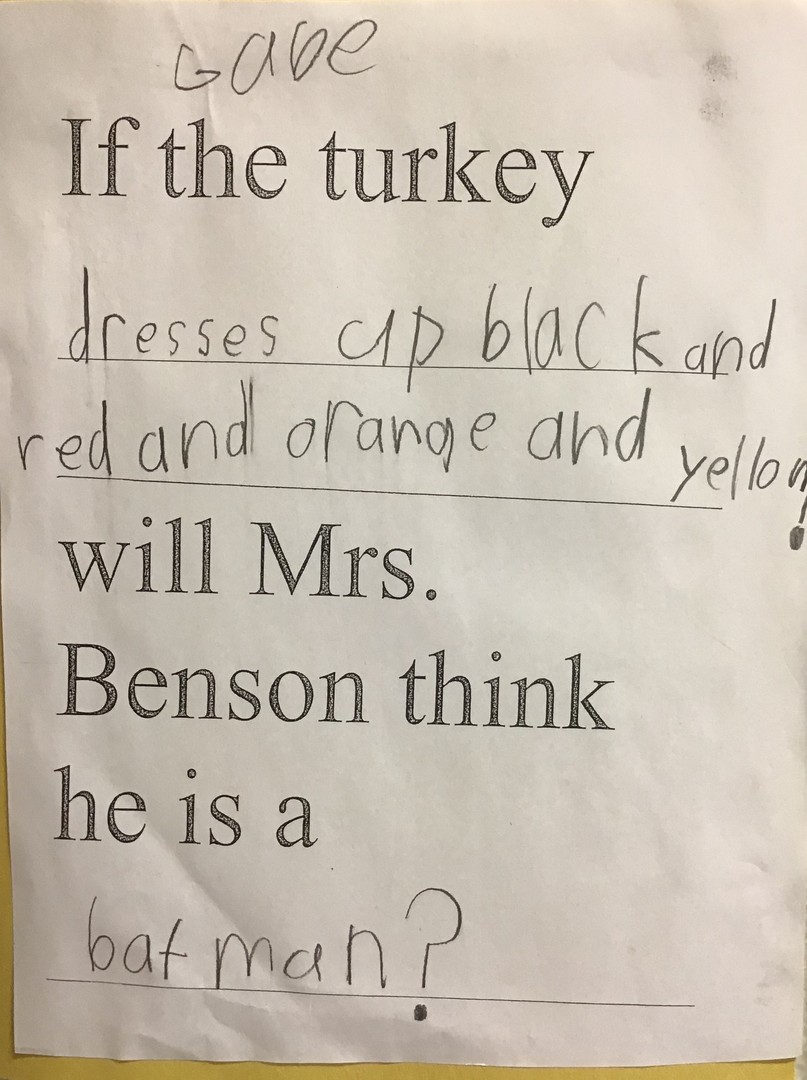 Gabe
If the turkey
dresses up black and
red and orange and yellow,
will Mrs.
Benson think
he is a
bat man?